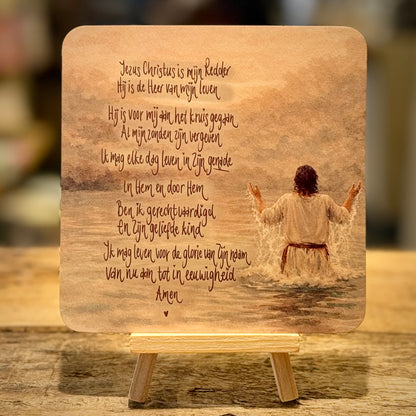 Jezus Christus is mijn Redder
Hij is de Heer van mijn leven
Hij is voor mij aan het kruis gegaan
Al mijn zonden zijn vergeven
Ik mag elke dag leven in Zijn genade
In Hem en door Hem
Ben ik gerechtvaardigd
En Zijn geliefde kind
Ik mag leven voor de glorie van Zijn naam
Van nu aan tot in eeuwigheid
Amen